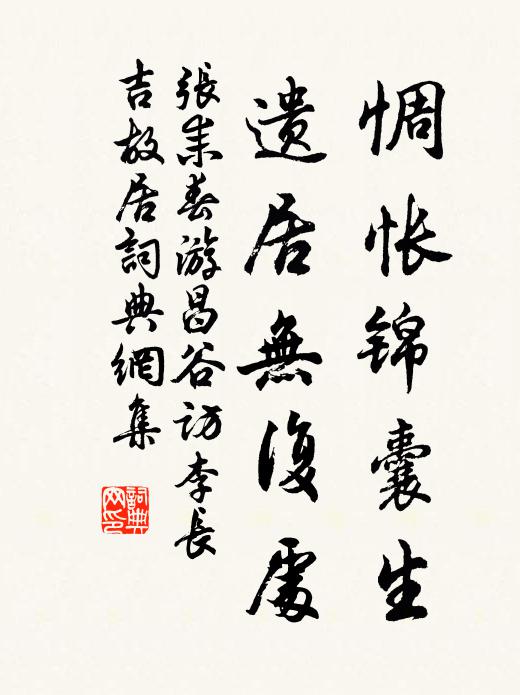 惆怅锦囊生
遗居無復處
張耒春游昌谷访李長
吉故居詞典網集
詞典
网印